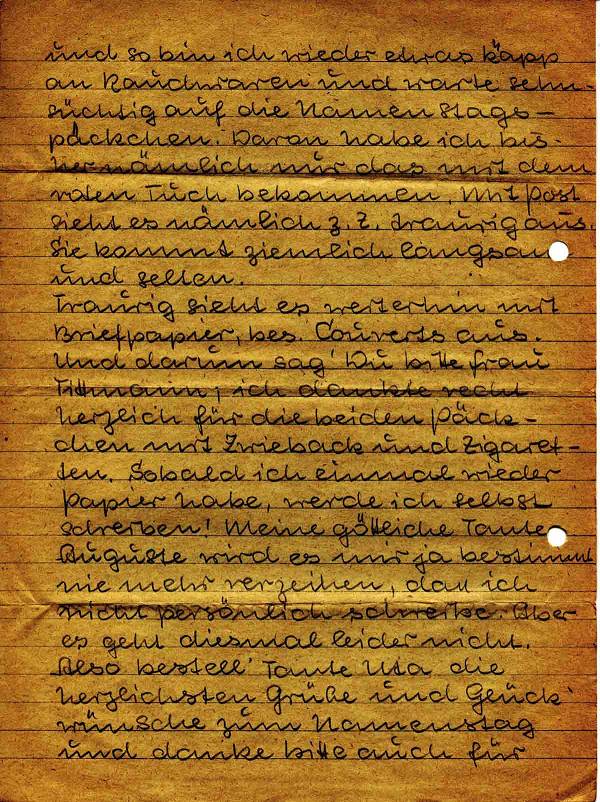 und so bin ich wieder etwas knapp
an Rauchwaren und warte sehn-
süchtig auf die Namenstags-
päckchen. Davon habe ich bis-
her nämlich nur das mit dem
roten Tuch bekommen. Mit Post
sieht es nämlich z. Z. traurig aus.
Sie kommt ziemlich langsam
und selten.
Traurig sieht es weiterhin mit
Briefpapier, bes. Couverts aus.
Und darum sag' Du bitte Frau
Tittmann, ich dankte recht
herzlich für die beiden Päck-
chen mit Zwieback und Zigaret-
ten. Sobald ich einmal wieder
Papier habe, werde ich selbst
schreiben! Meine göttliche Tante
Auguste wird es mir ja bestimmt
nie mehr verzeihen, daß ich
nicht persönlich schreibe. Aber
es geht diesmal leider nicht.
Also bestell' Tante Uta die
herzlichsten Grüße und Glück-
wünsche zum Namenstag
und danke bitte auch für